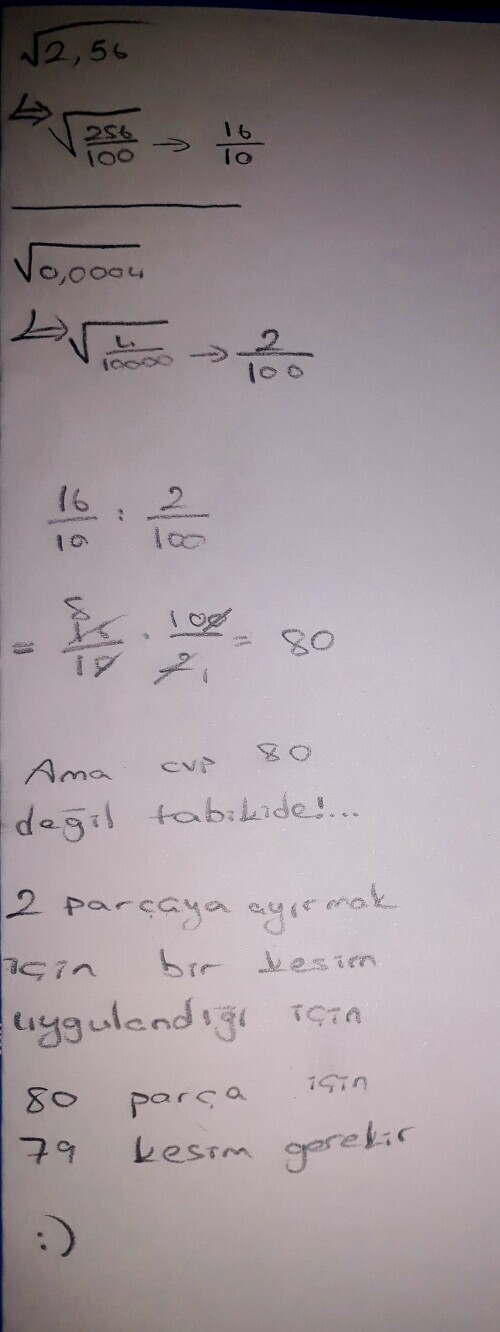 √2,56
↳ √256/100 → 16/10
√0,0004
↳ √4/10000 → 2/100
16/10 : 2/100
= 8 16/10 . 100/2 1 = 80
Ama cvp 80
değil tabikide!...
2 parçaya ayırmak
için bir kesim
uygulandığı için
80 parça için
79 kesim gerekir
:)